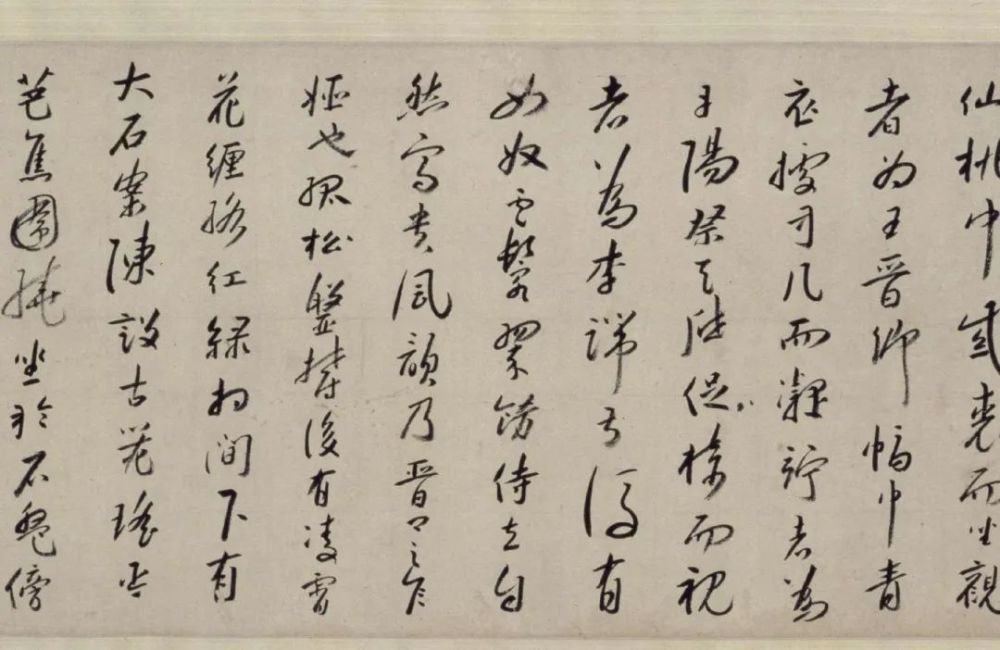 仙桃巾紫裘而坐觀
者为王晉卿幅巾青
衣據方几而凝竚者為
丹陽蔡天啓捉椅而視
者為李端叔後有
女奴雲鬟翠飾侍立自
然富貴風韻乃晉卿之家
姬也孤松盤欝後有凌霄
花纏絡紅綠相間下有
大石案陳設古器瑤琴
芭蕉圍繞坐於石盤傍